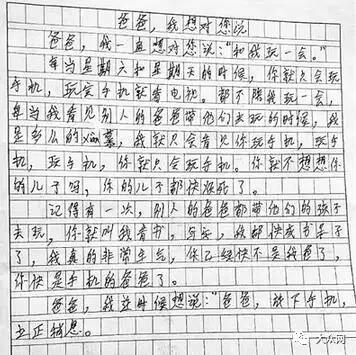 爸爸，我想对您说
爸爸，我一直想对您说：“和我玩一会。”
每当星期六和星期天的时候，你就只会玩
手机，玩完手机就看电视。都不陪我玩一会，
每当我看见别人的爸爸带他们去玩的时候，我
是多么的xiàn慕，我就只会看见你玩手机，玩手
机，玩手机，你就只会玩手机。你就不想想你
的儿子吗，你的儿子都快疯死了。
记得有一次，别人的爸爸都带他们的孩子
去玩，你就叫我看书，写字，我都快成书呆子
了，我真的非常生气，你已经快不是我爸了，
你快是手机的爸爸了。
爸爸，我这时候想说：“爸爸，放下手机，
大众网